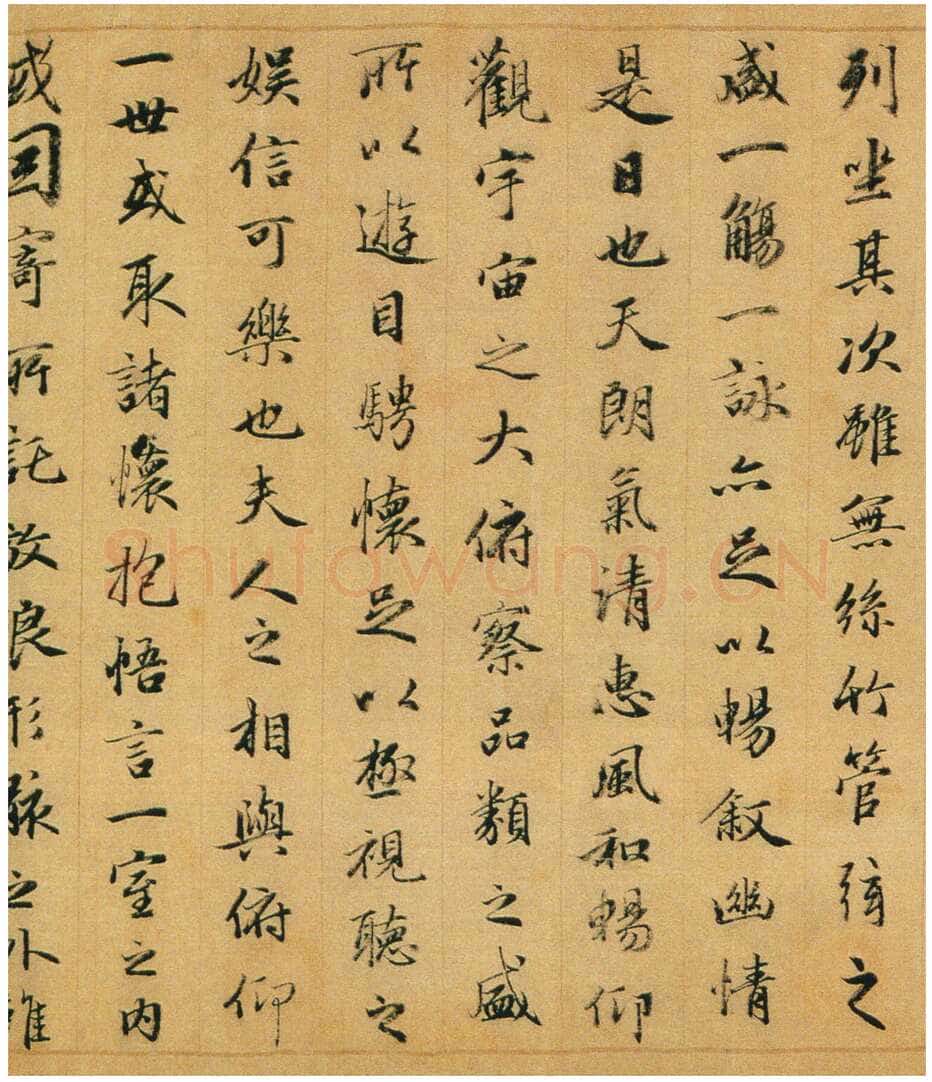 列坐其次雖無絲竹管弦之
盛一觴一詠亦足以暢敘幽情
是日也天朗氣清惠風和暢仰
觀宇宙之大俯察品類之盛
所以遊目騁懷足以極視聽之
娛信可樂也夫人之相與俯仰
一世或取諸懷抱悟言一室之內
或因寄所託放浪形骸之外雖
Shufawang.CN